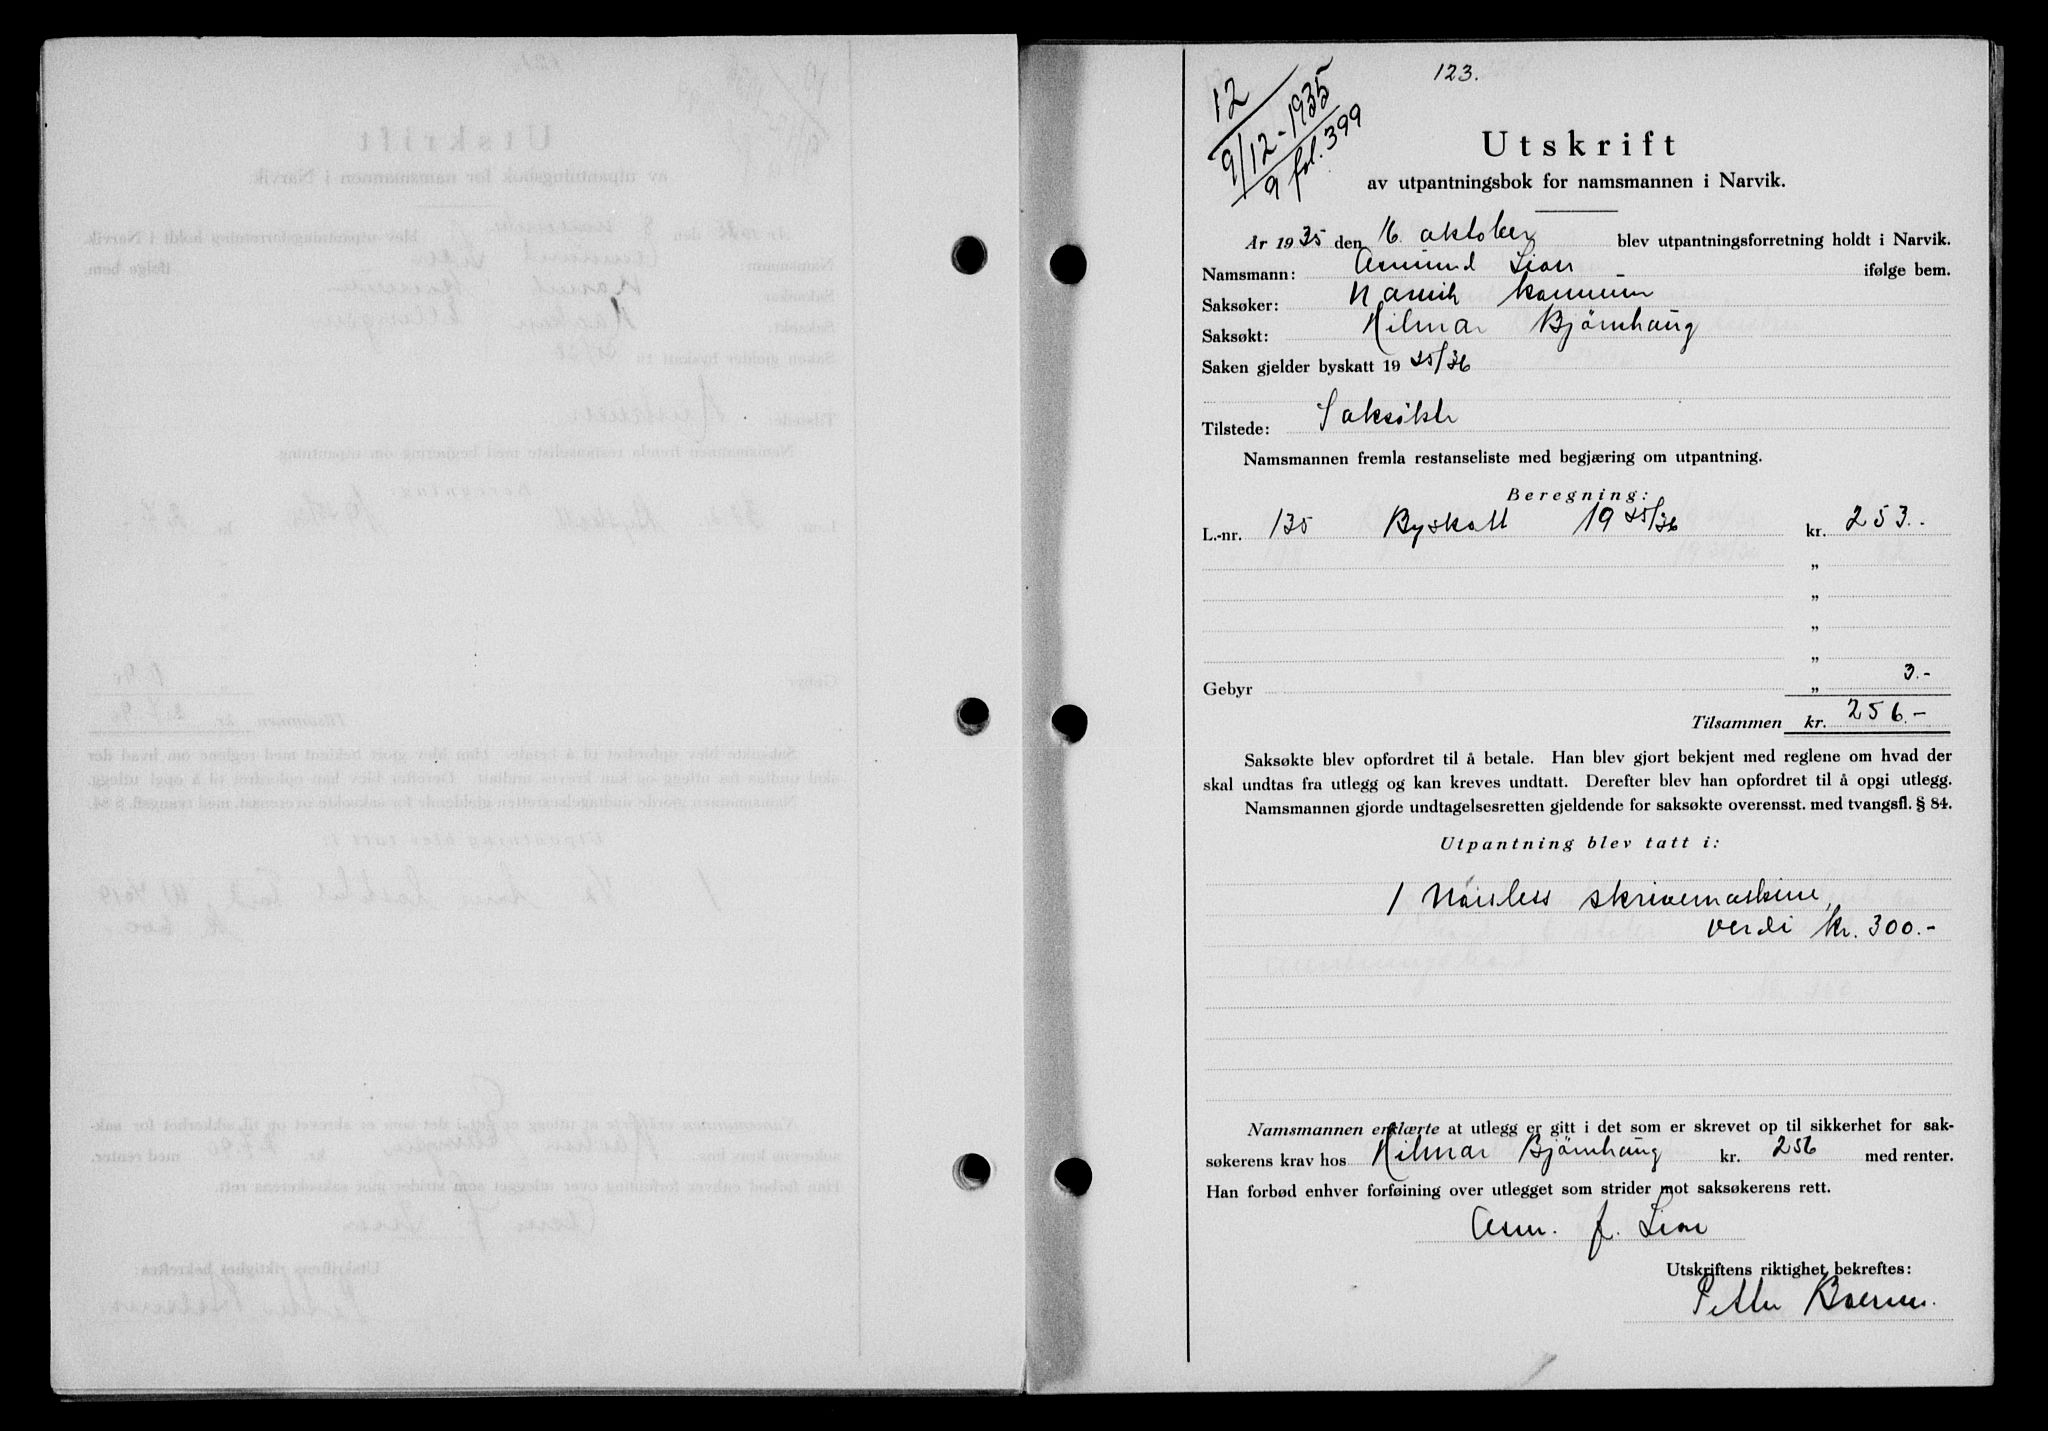 123.
12
9/12-1935
9 fol. 399
Utskrift
av utpantningsbok for namsmannen i Narvik.
År 1935 den 16. oktober blev utpantningsforretning holdt i Narvik.
Namsmann: Asmund Lian ifølge bem.
Saksøker: Narvik kommune
Saksøkt: Hilmar Bjørnhaug
Saken gjelder byskatt 1935/36
Tilstede: Saksøkte
Namsmannen fremla restanseliste med begjæring om utpantning.
Beregning:
L.-nr. 135 Byskatt 1935/36 kr. 253.-
„
„
„
„
Gebyr „ 3.-
Tilsammen kr. 256.-
Saksøkte blev opfordret til å betale. Han blev gjort bekjent med reglene om hvad der
skal undtas fra utlegg og kan kreves undtatt. Derefter blev han opfordret til å opgi utlegg.
Namsmannen gjorde undtagelsesretten gjeldende for saksøkte overensst. med tvangsfl. § 84.
Utpantning blev tatt i:
1 Noisless skrivemaskine,
verdi kr. 300.-
Namsmannen erklærte at utlegg er gitt i det som er skrevet op til sikkerhet for sak-
søkerens krav hos Hilmar Bjørnhaug kr. 256 med renter.
Han forbød enhver forføining over utlegget som strider mot saksøkerens rett.
Asm. J. Lian
Utskriftens riktighet bekreftes:
Petter